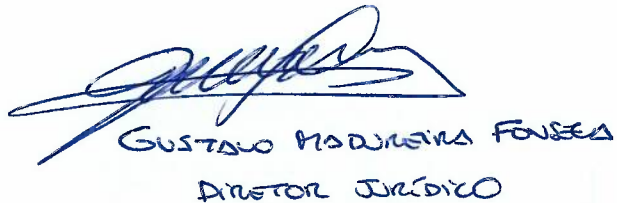 GUSTAVO MADUREIRA FONSECA
DIRETOR JURÍDICO